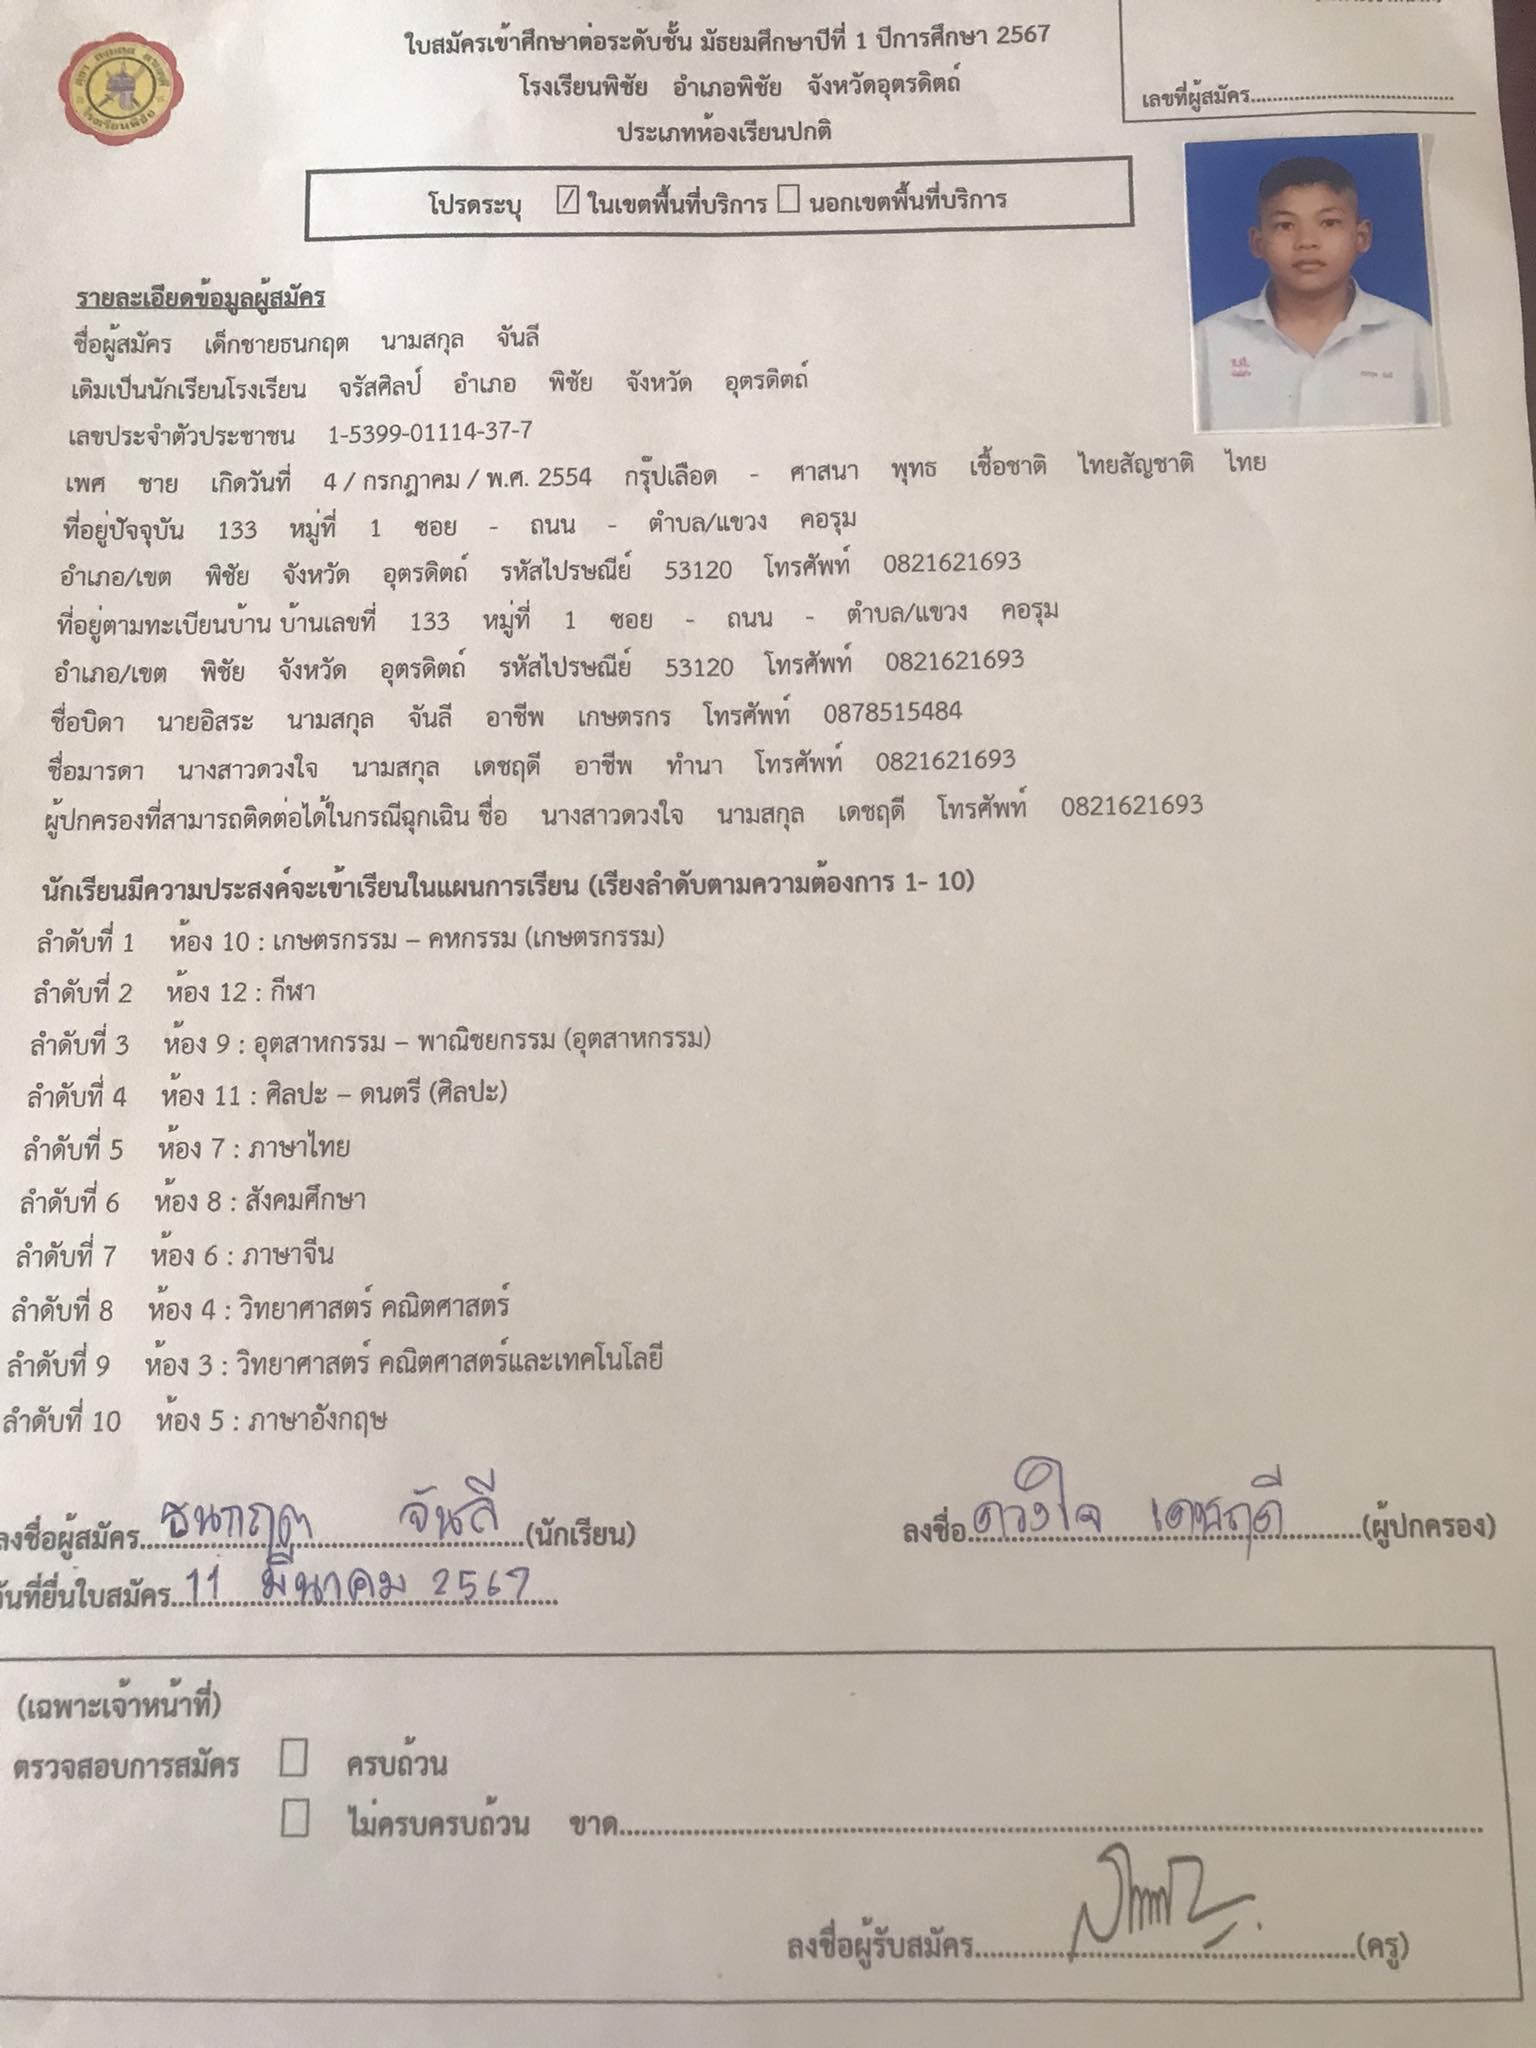 ใบสมัครเข้าศึกษาต่อระดับชั้น มัธยมศึกษาปีที่ 1 ปีการศึกษา 2567
โรงเรียนพิชัย อำเภอพิชัย จังหวัดอุตรดิตถ์
ประเภทห้องเรียนปกติ
เลขที่ผู้สมัคร
โปรดระบุ ☑ ในเขตพื้นที่บริการ ☐ นอกเขตพื้นที่บริการ
รายละเอียดข้อมูลผู้สมัคร
ชื่อผู้สมัคร เด็กชายธนกฤต นามสกุล จันลี
เดิมเป็นนักเรียนโรงเรียน จรัสศิลป์ อำเภอ พิชัย จังหวัด อุตรดิตถ์
เลขประจำตัวประชาชน 1-5399-01114-37-7
เพศ ชาย เกิดวันที่ 4 / กรกฎาคม / พ.ศ. 2554 กรุ๊ปเลือด - ศาสนา พุทธ เชื้อชาติ ไทยสัญชาติ ไทย
ที่อยู่ปัจจุบัน 133 หมู่ที่ 1 ซอย - ถนน - ตำบล/แขวง คอรุม
อำเภอ/เขต พิชัย จังหวัด อุตรดิตถ์ รหัสไปรษณีย์ 53120 โทรศัพท์ 0821621693
ที่อยู่ตามทะเบียนบ้าน บ้านเลขที่ 133 หมู่ที่ 1 ซอย - ถนน - ตำบล/แขวง คอรุม
อำเภอ/เขต พิชัย จังหวัด อุตรดิตถ์ รหัสไปรษณีย์ 53120 โทรศัพท์ 0821621693
ชื่อบิดา นายอิสระ นามสกุล จันลี อาชีพ เกษตรกร โทรศัพท์ 0878515484
ชื่อมารดา นางสาวดวงใจ นามสกุล เดชฤดี อาชีพ ทำนา โทรศัพท์ 0821621693
ผู้ปกครองที่สามารถติดต่อได้ในกรณีฉุกเฉิน ชื่อ นางสาวดวงใจ นามสกุล เดชฤดี โทรศัพท์ 0821621693
นักเรียนมีความประสงค์จะเข้าเรียนในแผนการเรียน (เรียงลำดับตามความต้องการ 1- 10)
ลำดับที่ 1 ห้อง 10 : เกษตรกรรม – คหกรรม (เกษตรกรรม)
ลำดับที่ 2 ห้อง 12 : กีฬา
ลำดับที่ 3 ห้อง 9 : อุตสาหกรรม – พาณิชยกรรม (อุตสาหกรรม)
ลำดับที่ 4 ห้อง 11 : ศิลปะ – ดนตรี (ศิลปะ)
ลำดับที่ 5 ห้อง 7 : ภาษาไทย
ลำดับที่ 6 ห้อง 8 : สังคมศึกษา
ลำดับที่ 7 ห้อง 6 : ภาษาจีน
ลำดับที่ 8 ห้อง 4 : วิทยาศาสตร์ คณิตศาสตร์
ลำดับที่ 9 ห้อง 3 : วิทยาศาสตร์ คณิตศาสตร์และเทคโนโลยี
ลำดับที่ 10 ห้อง 5 : ภาษาอังกฤษ
ลงชื่อผู้สมัคร ธนกฤต จันลี (นักเรียน) ลงชื่อ ดวงใจ เดชฤดี (ผู้ปกครอง)
วันที่ยื่นใบสมัคร 11 มีนาคม 2567
(เฉพาะเจ้าหน้าที่)
ตรวจสอบการสมัคร ☐ ครบถ้วน
☐ ไม่ครบครบถ้วน ขาด
ลงชื่อผู้รับสมัคร (ครู)